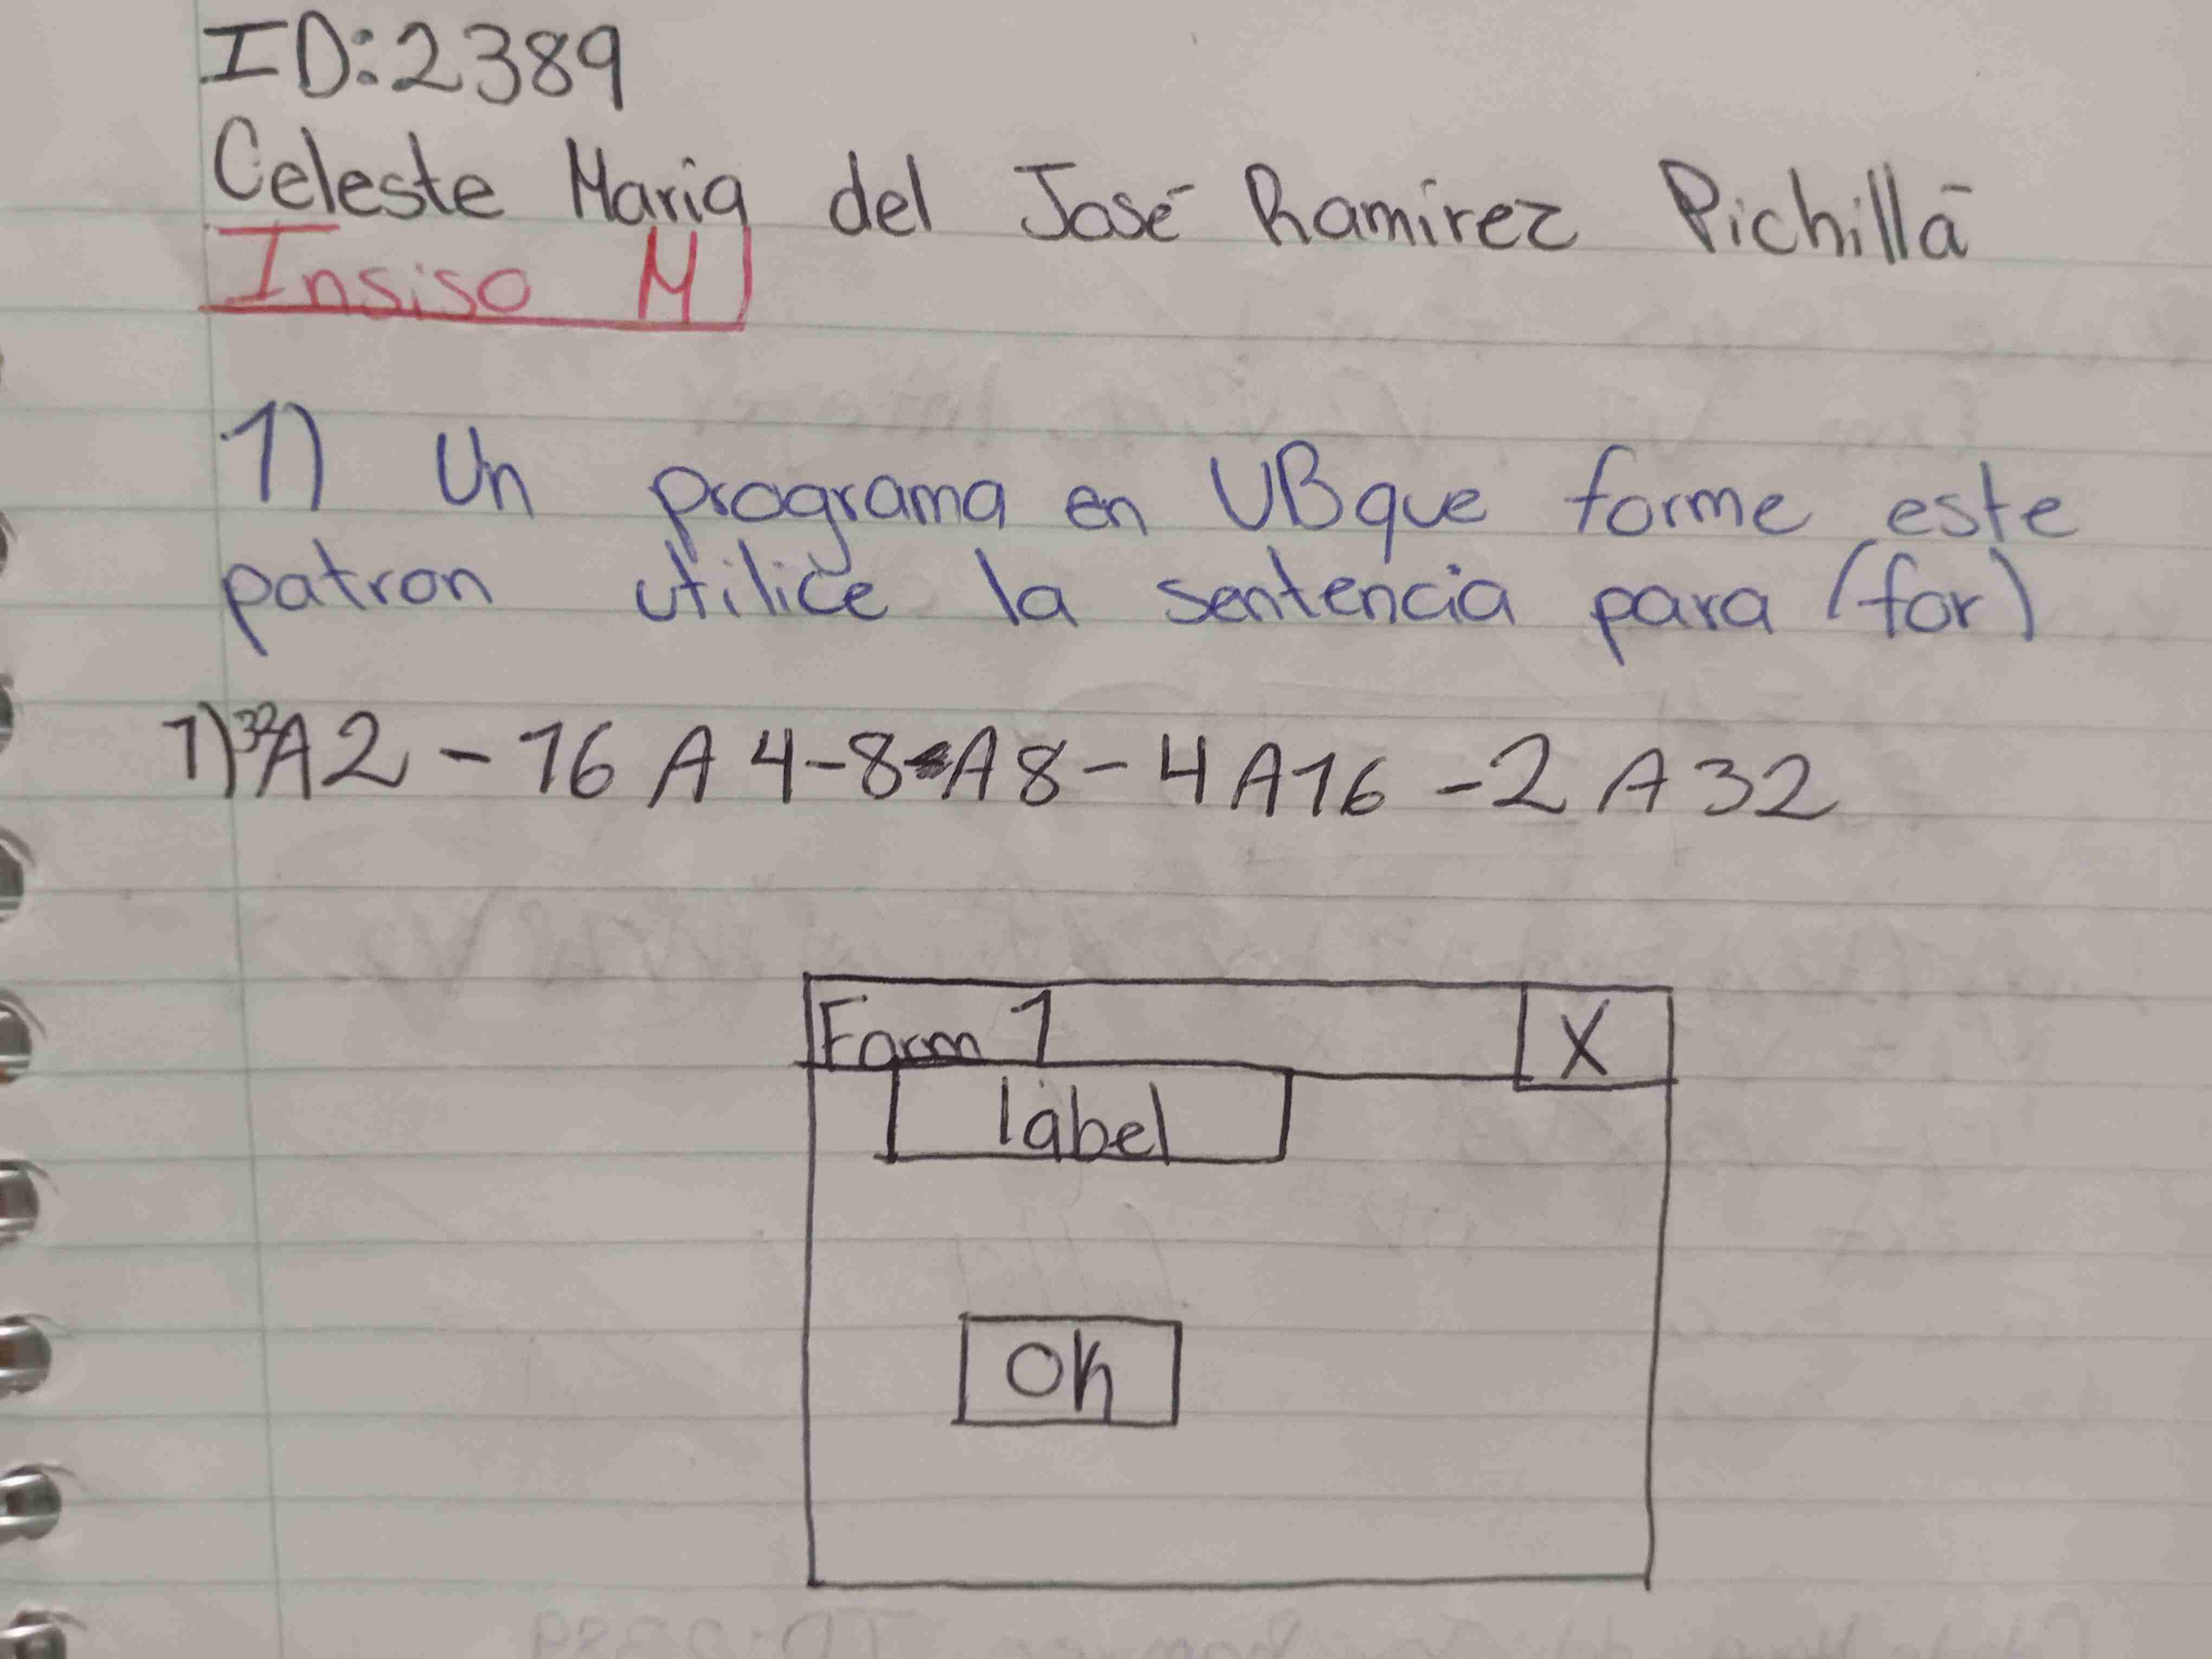 ID:2389
Celeste Maria del José Ramirez Pichillá
Insiso M
1) Un programa en VB que forme este
patron utilice la sentencia para (for)
1) 32A2 - 16 A 4 - 8 A8 - 4 A16 - 2 A 32
Form 1 X
label
OK